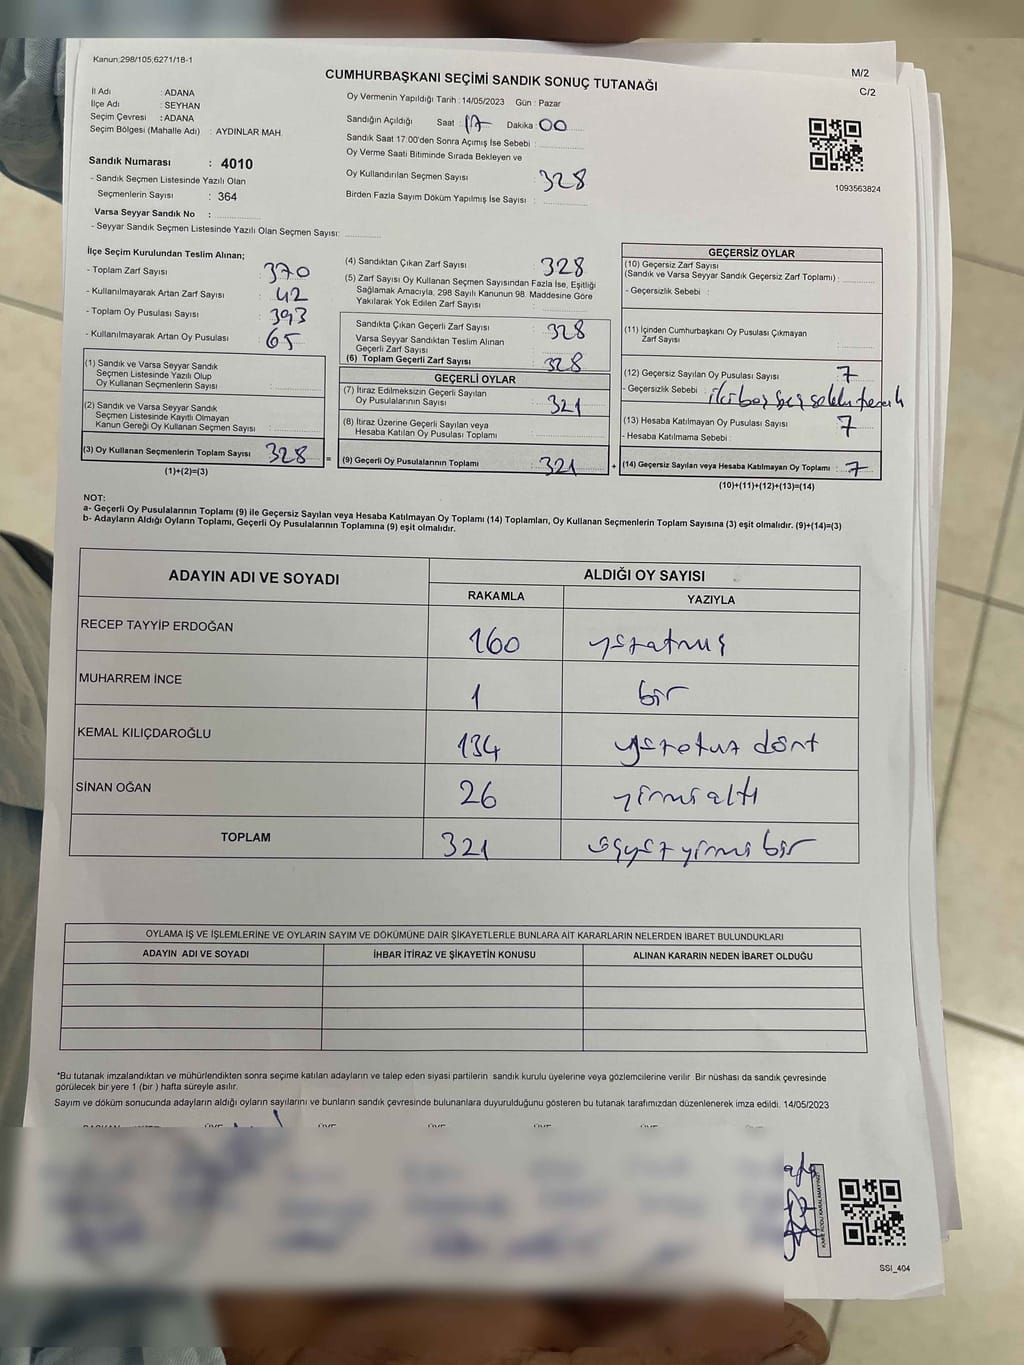 Kanun:298/105;6271/18-1
CUMHURBAŞKANI SEÇİMİ SANDIK SONUÇ TUTANAĞI
M/2
C/2
İl Adı : ADANA
İlçe Adı : SEYHAN
Seçim Çevresi : ADANA
Seçim Bölgesi (Mahalle Adı) : AYDINLAR MAH.
Sandık Numarası : 4010
- Sandık Seçmen Listesinde Yazılı Olan
Seçmenlerin Sayısı : 364
Varsa Seyyar Sandık No :
- Seyyar Sandık Seçmen Listesinde Yazılı Olan Seçmen Sayısı:
Oy Vermenin Yapıldığı Tarih : 14/05/2023 Gün : Pazar
Sandığın Açıldığı Saat : 17 Dakika : 00
Sandık Saat 17:00'den Sonra Açımış İse Sebebi :
Oy Verme Saati Bitiminde Sırada Bekleyen ve
Oy Kullandırılan Seçmen Sayısı : 328
Birden Fazla Sayım Döküm Yapılmış İse Sayısı :
1093563824
İlçe Seçim Kurulundan Teslim Alınan;
- Toplam Zarf Sayısı : 370
- Kullanılmayarak Artan Zarf Sayısı : 42
- Toplam Oy Pusulası Sayısı : 393
- Kullanılmayarak Artan Oy Pusulası : 65
(1) Sandık ve Varsa Seyyar Sandık
Seçmen Listesinde Yazılı Olup
Oy Kullanan Seçmenlerin Sayısı :
(2) Sandık ve Varsa Seyyar Sandık
Seçmen Listesinde Kayıtlı Olmayan
Kanun Gereği Oy Kullanan Seçmen Sayısı :
(3) Oy Kullanan Seçmenlerin Toplam Sayısı : 328
(1)+(2)=(3)
(4) Sandıktan Çıkan Zarf Sayısı : 328
(5) Zarf Sayısı Oy Kullanan Seçmen Sayısından Fazla İse, Eşitliği
Sağlamak Amacıyla, 298 Sayılı Kanunun 98. Maddesine Göre
Yakılarak Yok Edilen Zarf Sayısı :
Sandıkta Çıkan Geçerli Zarf Sayısı : 328
Varsa Seyyar Sandıktan Teslim Alınan
Geçerli Zarf Sayısı :
(6) Toplam Geçerli Zarf Sayısı : 328
GEÇERLİ OYLAR
(7) İtiraz Edilmeksizin Geçerli Sayılan
Oy Pusulalarının Sayısı : 321
(8) İtiraz Üzerine Geçerli Sayılan veya
Hesaba Katılan Oy Pusulası Toplamı :
= (9) Geçerli Oy Pusulalarının Toplamı : 321 +
GEÇERSİZ OYLAR
(10) Geçersiz Zarf Sayısı
(Sandık ve Varsa Seyyar Sandık Geçersiz Zarf Toplamı) :
- Geçersizlik Sebebi :
(11) İçinden Cumhurbaşkanı Oy Pusulası Çıkmayan
Zarf Sayısı :
(12) Geçersiz Sayılan Oy Pusulası Sayısı : 7
- Geçersizlik Sebebi :
(13) Hesaba Katılmayan Oy Pusulası Sayısı : 7
- Hesaba Katılmama Sebebi :
(14) Geçersiz Sayılan veya Hesaba Katılmayan Oy Toplamı : 7
(10)+(11)+(12)+(13)=(14)
NOT:
a- Geçerli Oy Pusulalarının Toplamı (9) ile Geçersiz Sayılan veya Hesaba Katılmayan Oy Toplamı (14) Toplamları, Oy Kullanan Seçmenlerin Toplam Sayısına (3) eşit olmalıdır. (9)+(14)=(3)
b- Adayların Aldığı Oyların Toplamı, Geçerli Oy Pusulalarının Toplamına (9) eşit olmalıdır.
ADAYIN ADI VE SOYADI ALDIĞI OY SAYISI
RAKAMLA YAZIYLA
RECEP TAYYİP ERDOĞAN 160 yüzatmış
MUHARREM İNCE 1 bir
KEMAL KILIÇDAROĞLU 134 yüzotuz dört
SİNAN OĞAN 26 yirmi altı
TOPLAM 321 üçyüz yirmi bir
OYLAMA İŞ VE İŞLEMLERİNE VE OYLARIN SAYIM VE DÖKÜMÜNE DAİR ŞİKAYETLERLE BUNLARA AİT KARARLARIN NELERDEN İBARET BULUNDUKLARI
ADAYIN ADI VE SOYADI İHBAR İTİRAZ VE ŞİKAYETİN KONUSU ALINAN KARARIN NEDEN İBARET OLDUĞU
*Bu tutanak imzalandıktan ve mühürlendikten sonra seçime katılan adayların ve talep eden siyasi partilerin sandık kurulu üyelerine veya gözlemcilerine verilir Bir nüshası da sandık çevresinde
görülecek bir yere 1 (bir ) hafta süreyle asılır.
Sayım ve döküm sonucunda adayların aldığı oyların sayılarını ve bunların sandık çevresinde bulunanlara duyurulduğunu gösteren bu tutanak tarafımızdan düzenlenerek imza edildi. 14/05/2023
KARE KODU KARALAMAYINIZ
SSI_404